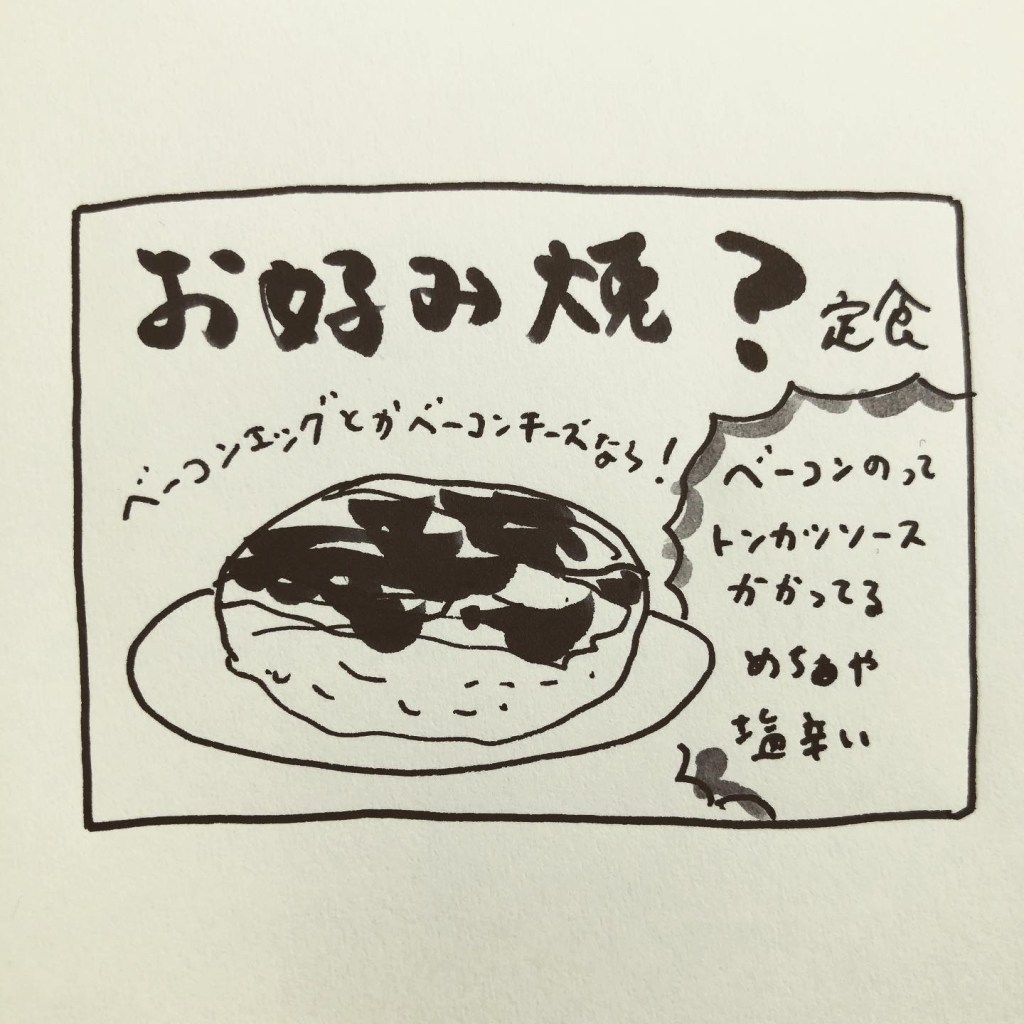 お好み焼？定食
ベーコンエッグとかベーコンチーズなら！
ベーコンのって
トンカツソース
かかってる
めちゃや
塩辛い